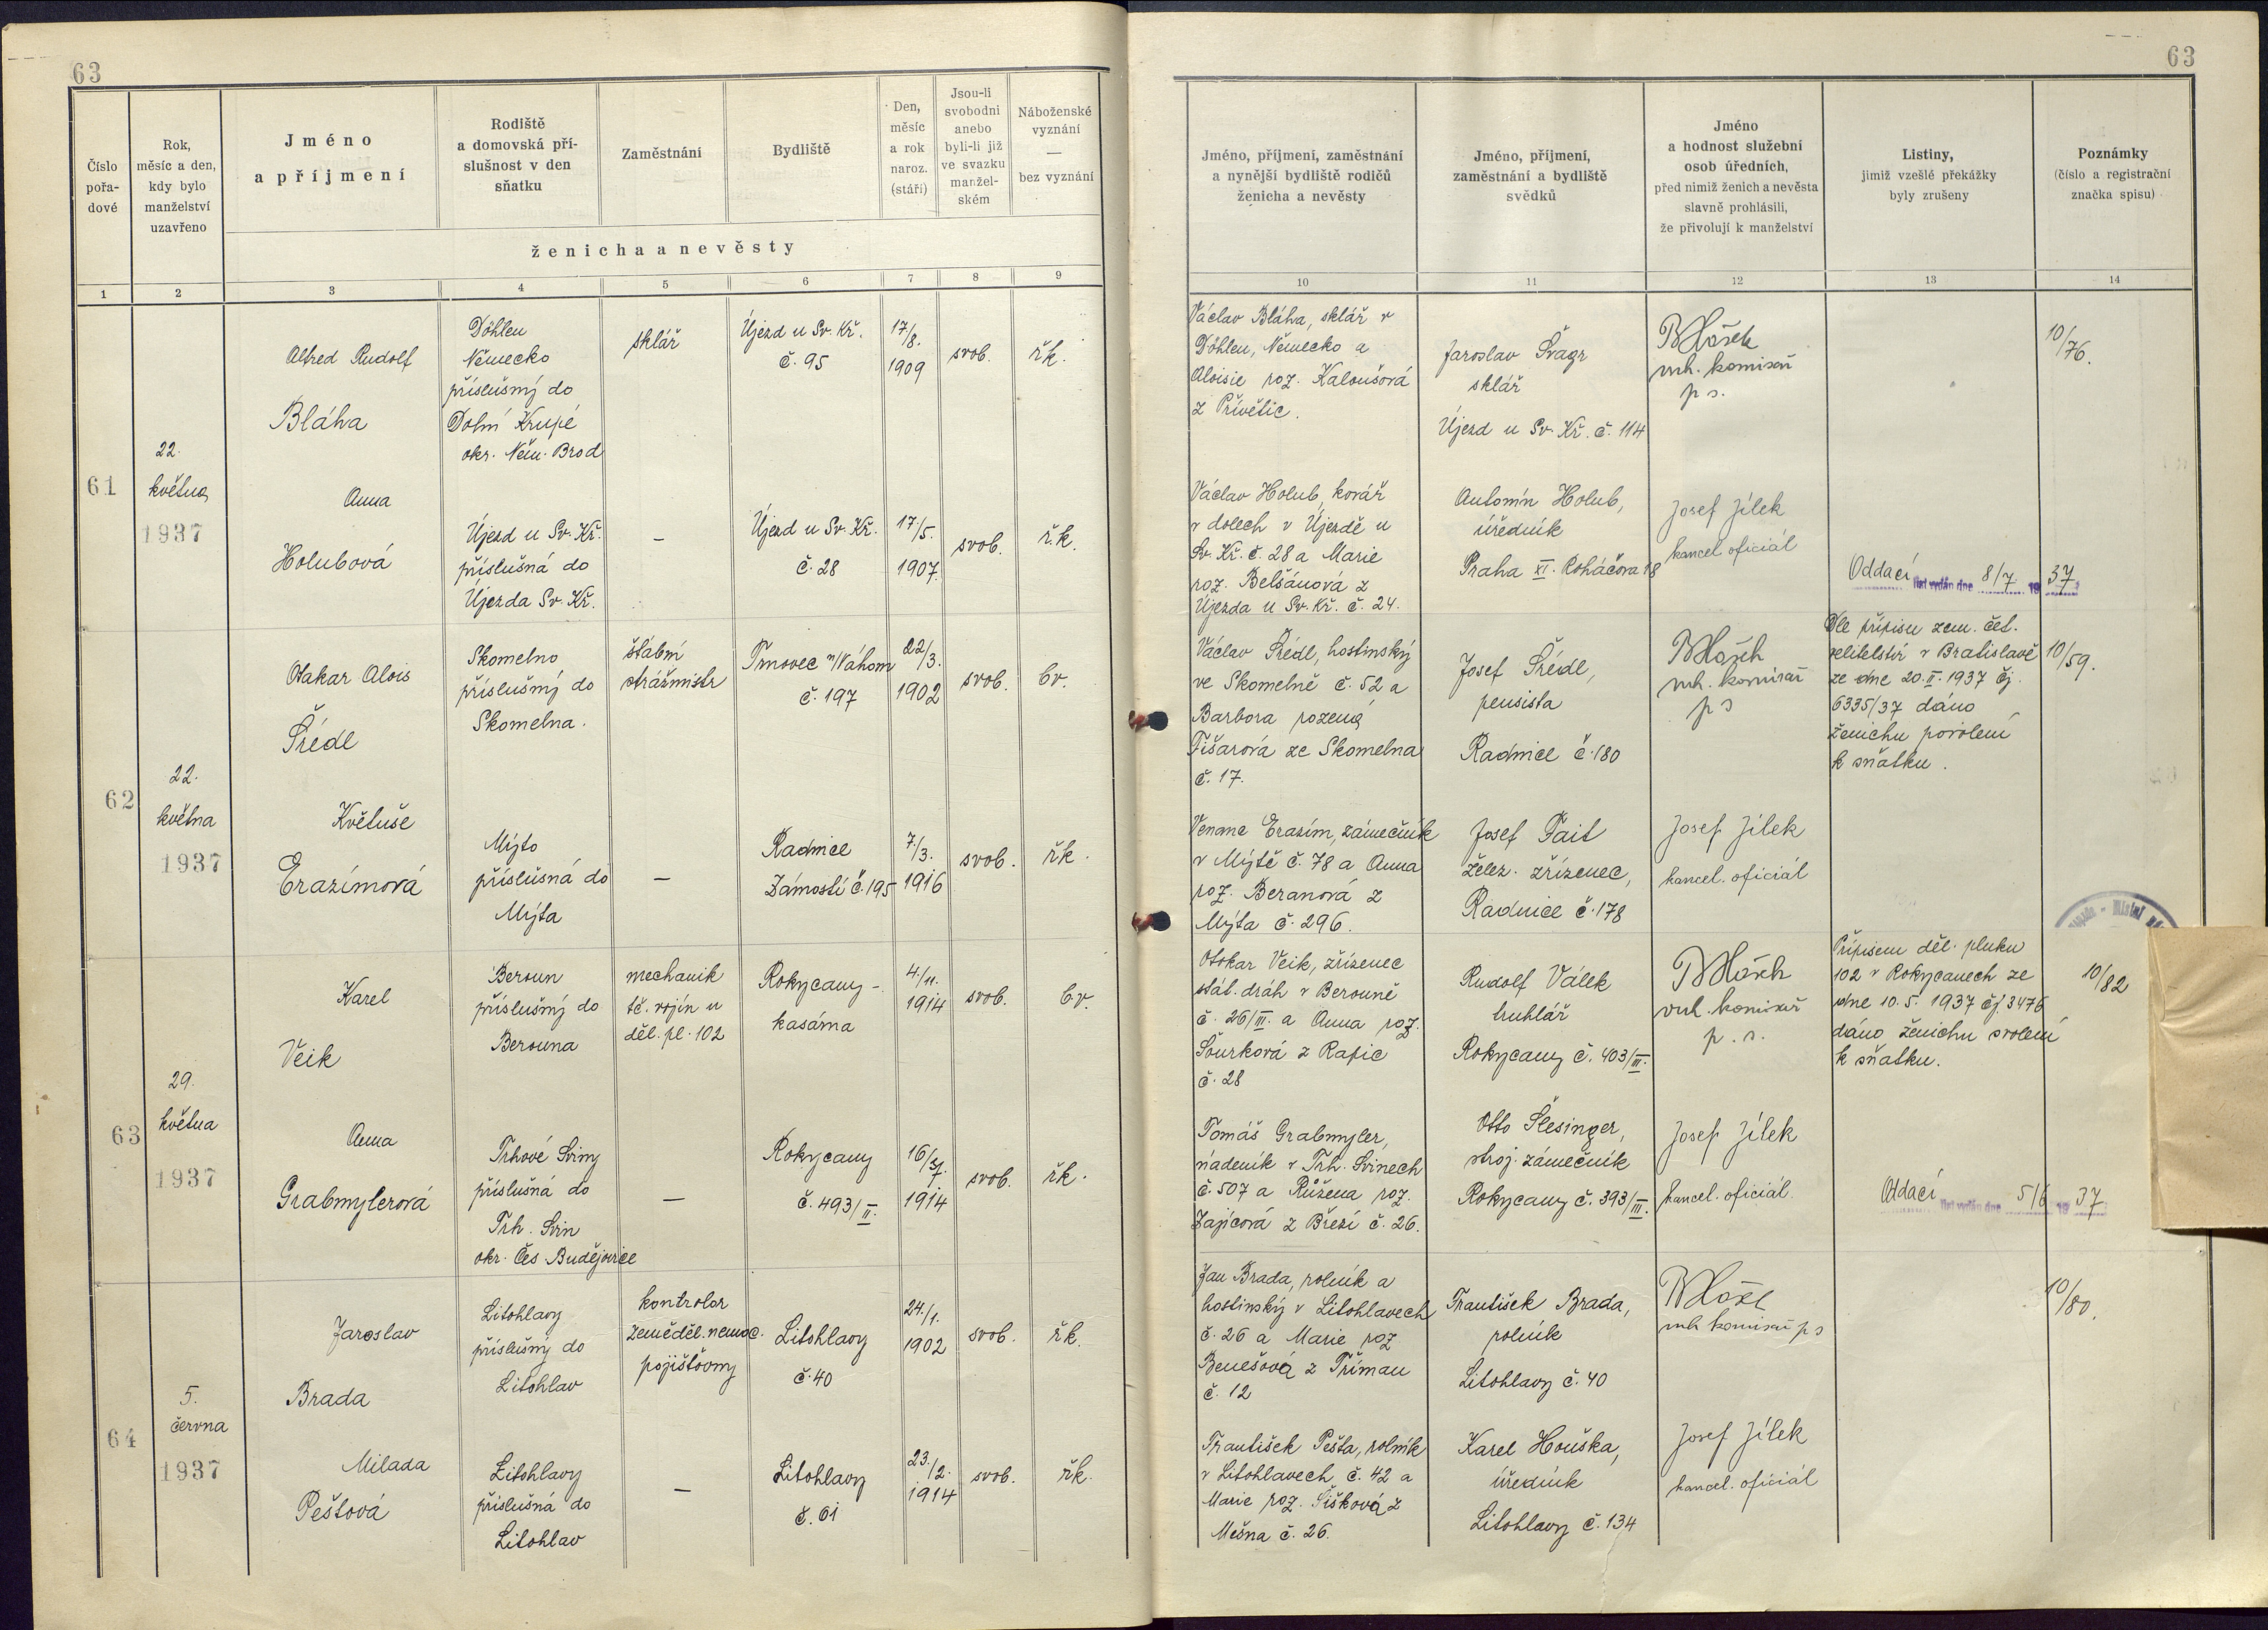 63
Číslo
pořa-
dové
Rok,
měsíc a den,
kdy bylo
manželství
uzavřeno
Jméno
a příjmení
Rodiště
a domovská pří-
slušnost v den
sňatku
Zaměstnání
Bydliště
Den,
měsíc
a rok
naroz.
(stáří)
Jsou-li
svobodni
anebo
byli-li již
ve svazku
manžel-
ském
Náboženské
vyznání
—
bez vyznání
ženicha a nevěsty
1 2 3 4 5 6 7 8 9
61
22.
května
1937
Alfred Rudolf
Bláha
Döhlen
Německo
příslušný do
Dolní Krupé
okr. Něm. Brod
sklář
Újezd u Sv. Kř.
č. 95
17./8.
1909
svob.
řk.
Anna
Holubová
Újezd u Sv. Kř.
příslušná do
Újezda Sv. Kř.
—
Újezd u Sv. Kř.
č. 28
17/5.
1907.
svob.
ř.k.
62
22.
května
1937
Otakar Alois
Šrédl
Skomelno
příslušný do
Skomelna.
štábní
strážmistr
Trnovec n/Váhom
č. 197
22/3.
1902
svob.
bv.
Květuše
Erazímová
Mýto
příslušná do
Mýta
—
Radnice
Zámostí č. 195
7./3.
1916
svob.
řk.
63
29.
května
1937
Karel
Veik
Beroun
příslušný do
Berouna
mechanik
tč. vojín u
děl. pl. 102
Rokycany -
kasárna
4./11.
1914
svob.
bv.
Anna
Grabmylerová
Trhové Sviny
příslušná do
Trh. Svin
okr. Čes. Budějovice
—
Rokycany
č. 493/II.
16/7.
1914
svob.
řk.
64
5.
června
1937
Jaroslav
Brada
Litohlavy
příslušný do
Litohlav
kontrolor
zeměděl. nemoc.
pojišťovny
Litohlavy
č. 40
24./1.
1902
svob.
řk.
Milada
Peštová
Litohlavy
příslušná do
Litohlav
—
Litohlavy
č. 61
23./2.
1914
svob.
řk.
63
Jméno, příjmení, zaměstnání
a nynější bydliště rodičů
ženicha a nevěsty
Jméno, příjmení,
zaměstnání a bydliště
svědků
Jméno
a hodnost služební
osob úředních,
před nimiž ženich a nevěsta
slavně prohlásili,
že přivolují k manželství
Listiny,
jimiž vzešlé překážky
byly zrušeny
Poznámky
(číslo a registrační
značka spisu)
10 11 12 13 14
Václav Bláha, sklář v
Döhlen, Německo a
Aloisie roz. Kaloušová
z Přívětic.
Jaroslav Švagr
sklář
Újezd u Sv. Kř. č. 114
vrch. komisař
p s.
10/76.
Václav Holub, kovář
v dolech v Újezdě u
Sv. Kř. č. 28 a Marie
roz. Belšánová z
Újezda u Sv. Kř. č. 24.
Antonín Holub,
úředník
Praha XI. Roháčova 18
Josef Jílek
kancel. oficiál
Oddací list vydán dne 8/7 1937
Václav Šrédl, hostinský
ve Skomelně č. 52 a
Barbora rozená
Fišarová ze Skomelna
č. 17.
Josef Šrédl,
pensista
Radnice č. 180
vrch. komisař
p s
Dle přípisu zem. čet.
velitelství v Bratislavě
ze dne 20.II.1937 čj.
6335/37 dáno
ženichu povolení
k sňatku.
10/59.
Venanc Erazím, zámečník
v Mýtě č. 78 a Anna
roz. Beranová z
Mýta č. 296.
Josef Pait
želez. zřízenec,
Radnice č. 178
Josef Jílek
kancel. oficiál
Otokar Veik, zřízenec
stát. drah v Berouně
č. 26/III. a Anna roz.
Šourková z Rapic
č. 28
Rudolf Válek
truhlář
Rokycany č. 403/III.
vrch. komisař
p. s.
Přípisem děl. pluku
102 v Rokycanech ze
dne 10.5.1937 čj. 3476
dáno ženichu svolení
k sňatku.
10/82
Tomáš Grabmyler,
nádeník v Trh. Svinech
č. 507 a Růžena roz.
Zajícová z Březí č. 26.
Otto Šlesinger,
stroj. zámečník
Rokycany č. 393/III.
Josef Jílek
kancel. oficiál.
Oddací list vydán dne 5/6 1937
Jan Brada, rolník a
hostinský v Litohlavech
č. 26 a Marie roz
Benešová z Těman
č. 12
František Brada,
rolník
Litohlavy č. 40
vrch komisař p s
10/80.
František Pešta, rolník
v Litohlavech č. 42 a
Marie roz. Šišková z
Mešna č. 26.
Karel Houška,
úředník
Litohlavy č. 134
Josef Jílek
kancel. oficiál